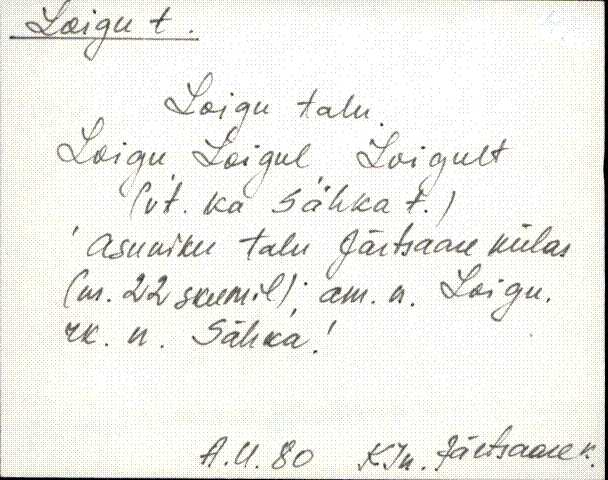 Loigu t.
Loigu talu.
Loigu, Loigul Loigult
(vt. ka Sähka t.)
Asuniku talu Järtsaare külas
(nr. 22 skeemil); am. n. Loigu.
rk. n. Sähka!
A.U. 80 KJn. Järtsaare k.